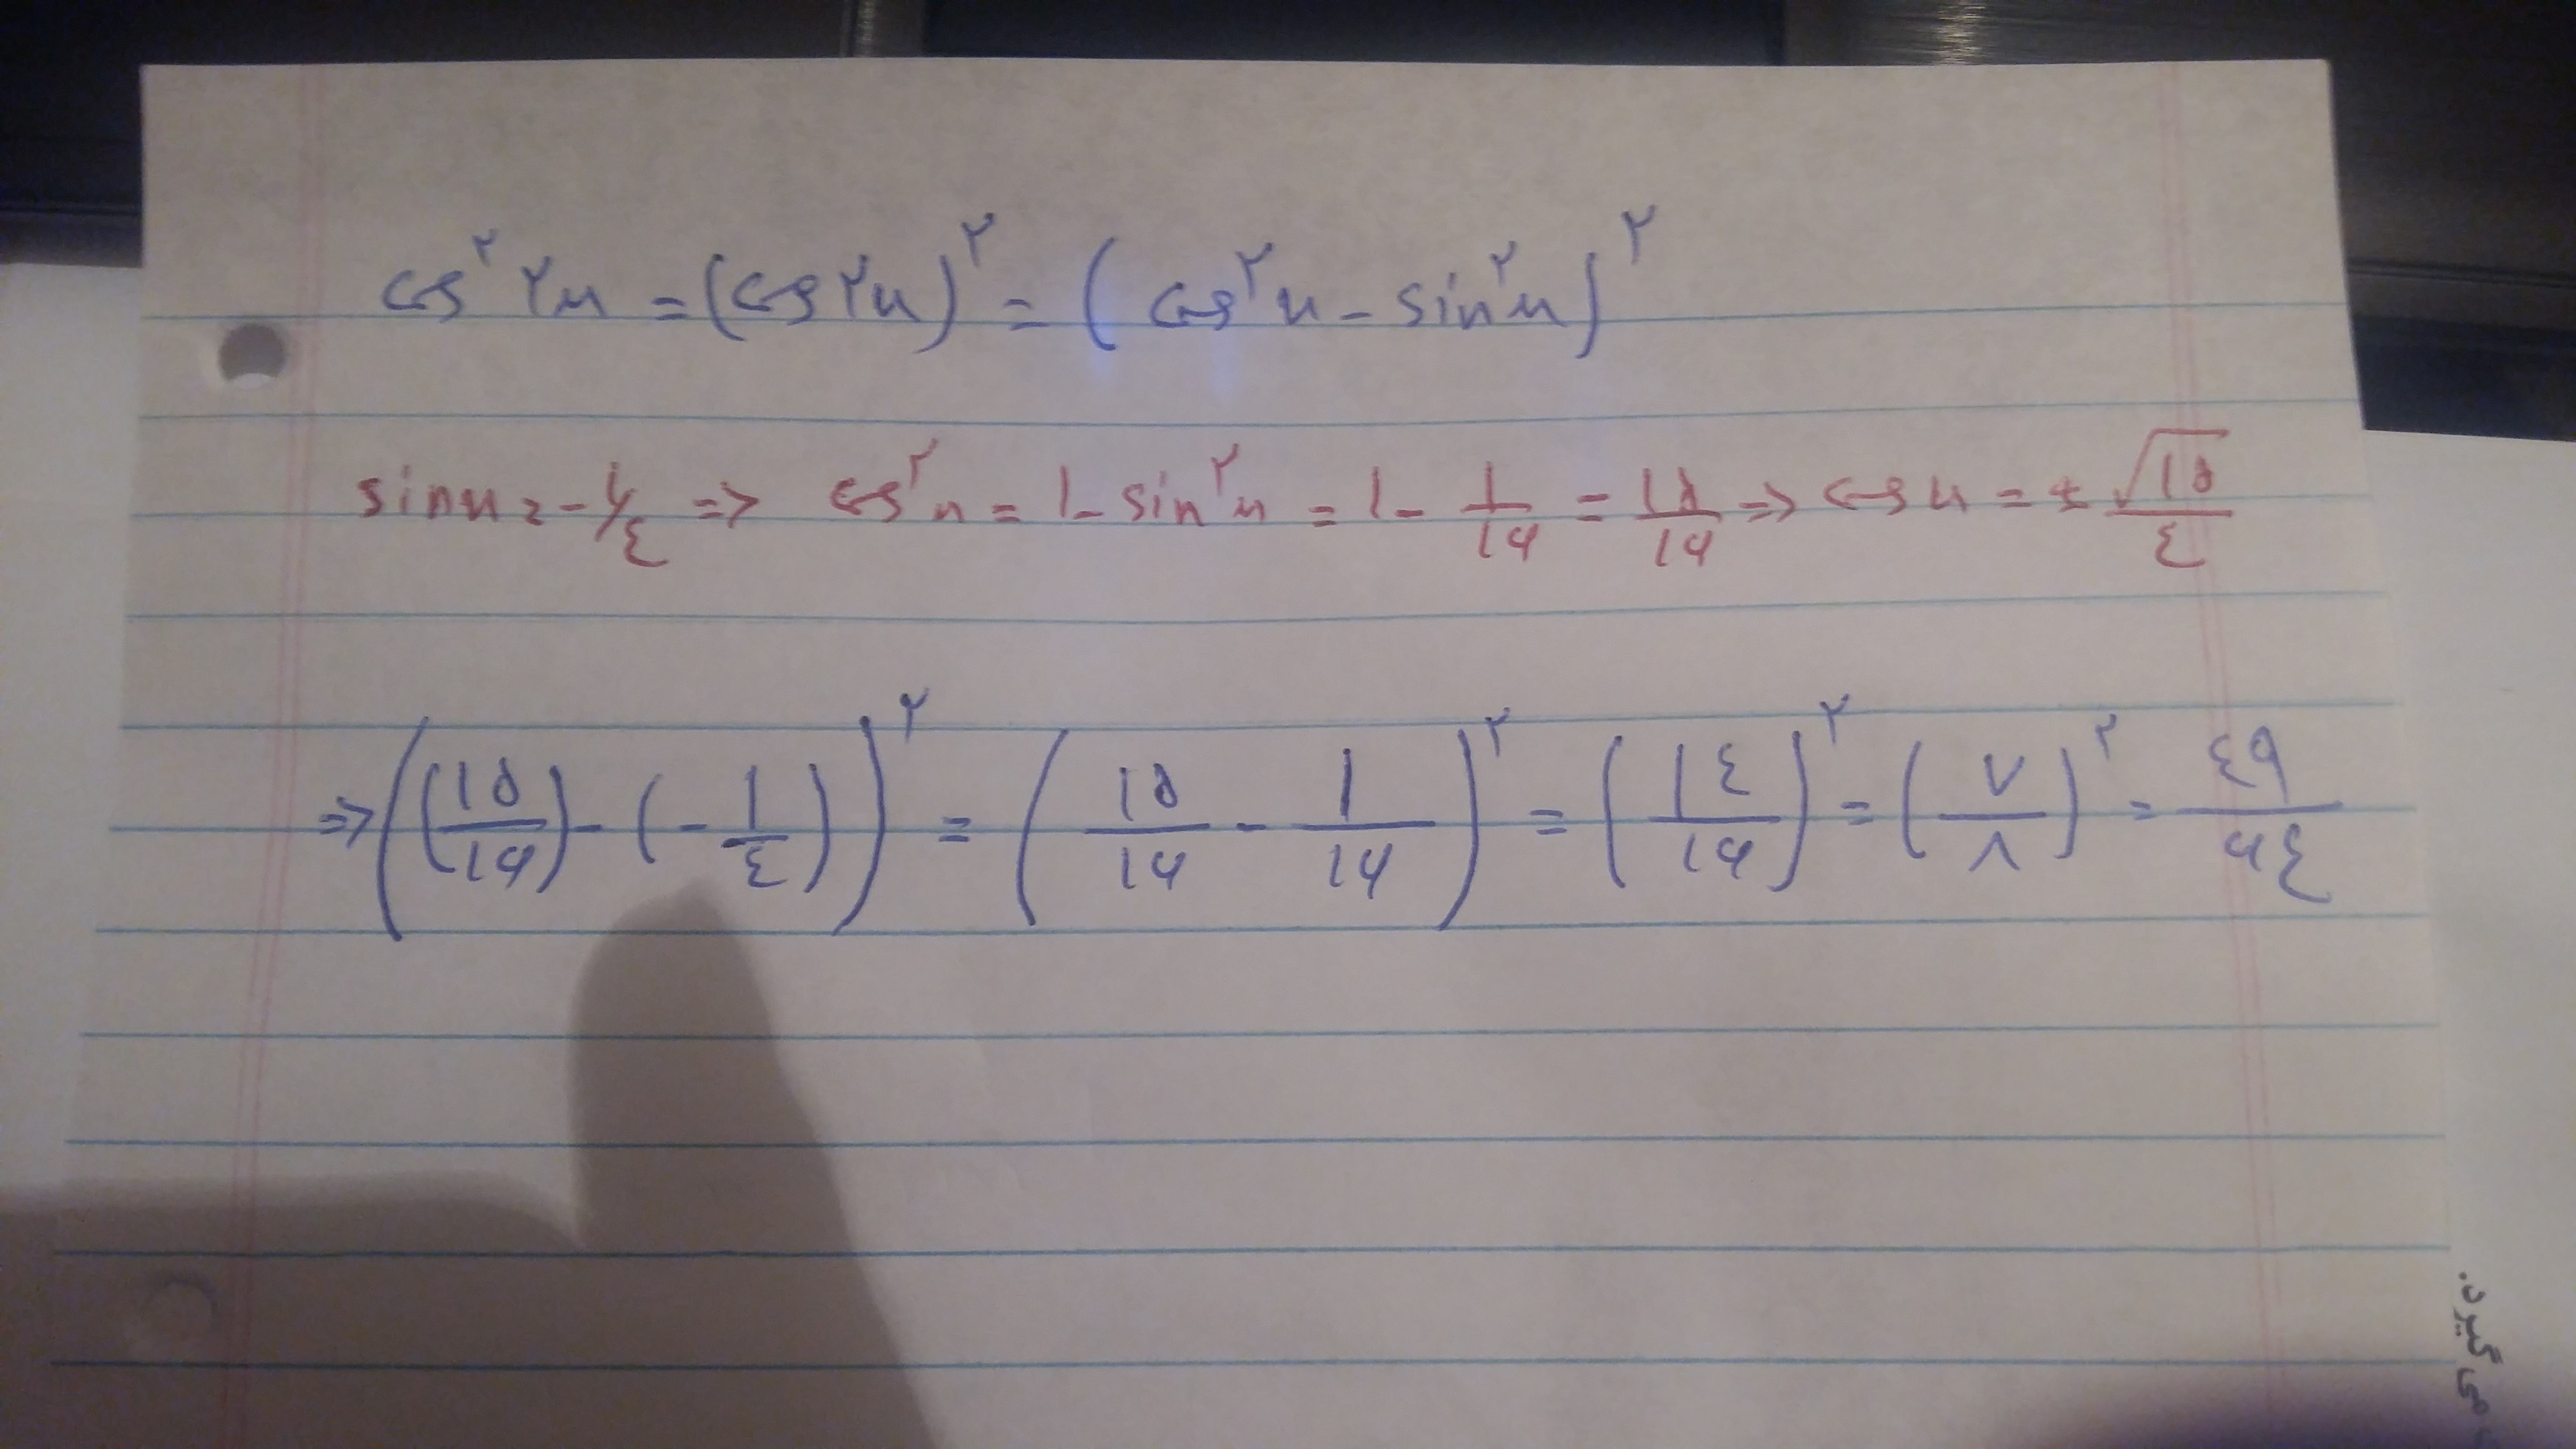 cos^۲ ۲x = (cos ۲x)^۲ = (cos^۲ x - sin^۲ x)^۲
sin x = - ۱/٤ => cos^۲ x = ۱ - sin^۲ x = ۱ - ۱/۱۶ = ۱۵/۱۶ => cos x = ± √۱۵/٤
=> ((۱۵/۱۶) - (- ۱/٤))^۲ = (۱۵/۱۶ - ۱/۱۶)^۲ = (۱٤/۱۶)^۲ = (۷/۸)^۲ = ٤۹/۶٤
می گیرد.